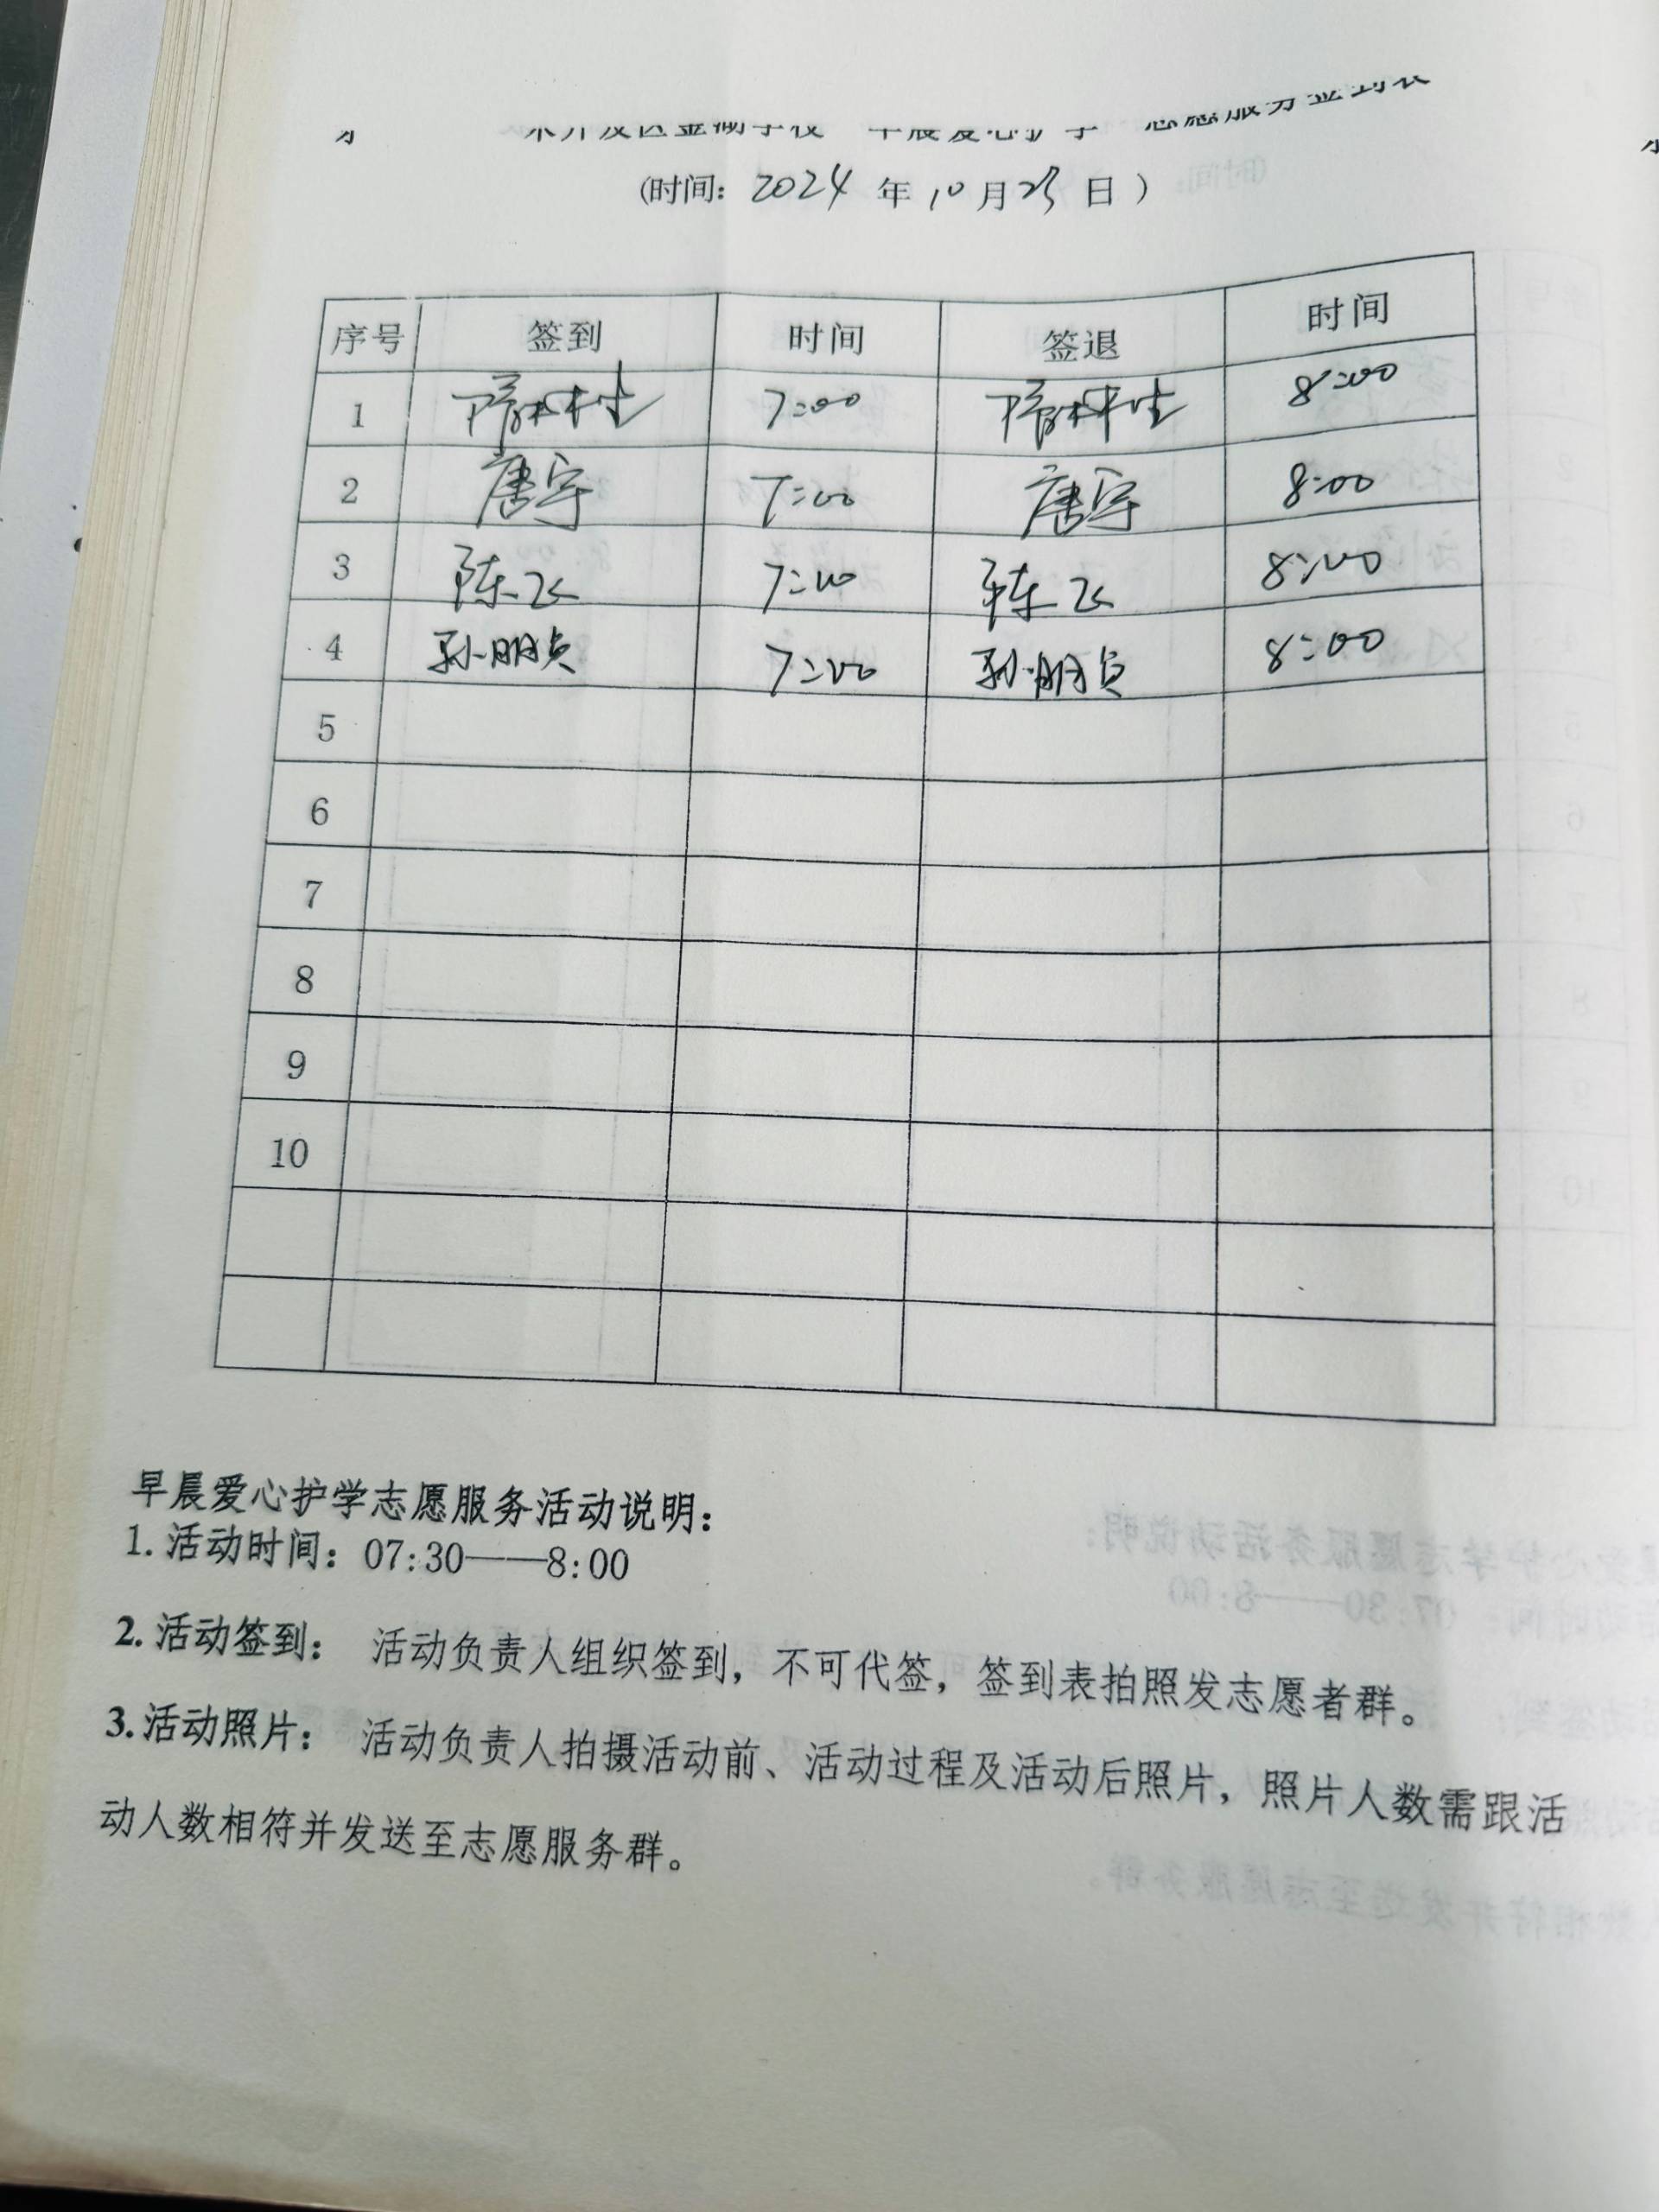 开发区金湖学校 早晨爱心护学 志愿服务签到表
(时间: 2024 年 10 月 23 日 )
序号 签到 时间 签退 时间
1 7:00 8:00
2 唐宇 7:00 唐宇 8:00
3 陈飞 7:00 陈飞 8:00
4 孙明贞 7:00 孙明贞 8:00
5
6
7
8
9
10
早晨爱心护学志愿服务活动说明:
1. 活动时间: 07:30——8:00
2. 活动签到: 活动负责人组织签到, 不可代签, 签到表拍照发志愿者群。
3. 活动照片: 活动负责人拍摄活动前、活动过程及活动后照片, 照片人数需跟活
动人数相符并发送至志愿服务群。